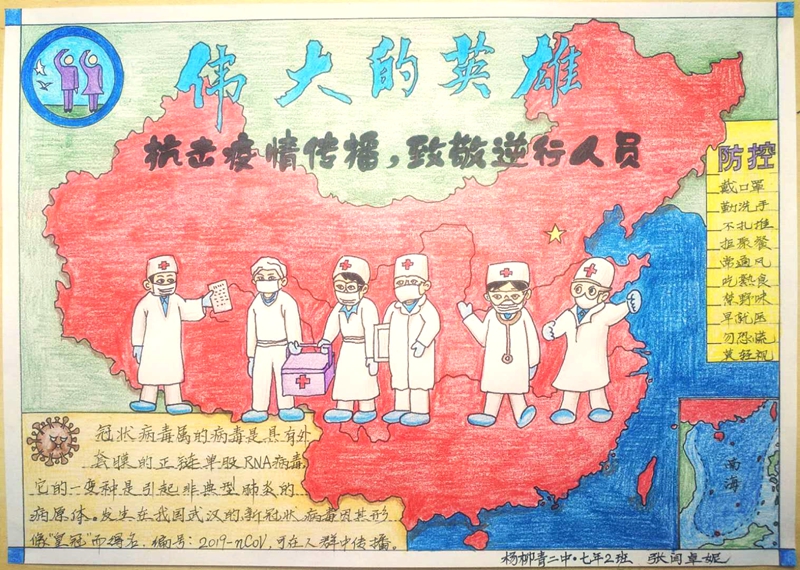 伟大的英雄
抗击疫情传播，致敬逆行人员
防控
戴口罩
勤洗手
不扎推
拒聚餐
常通风
吃熟食
禁野味
早就医
勿恐慌
莫轻视
冠状病毒属的病毒是具有外
套膜的正链单股RNA病毒,
它的一变种是引起非典型肺炎的
病原体。发生在我国武汉的新冠状病毒因其形
像"皇冠"而得名。编号：2019-nCoV,可在人群中传播。
南海
杨柳青二中·七年2班 张闫卓妮